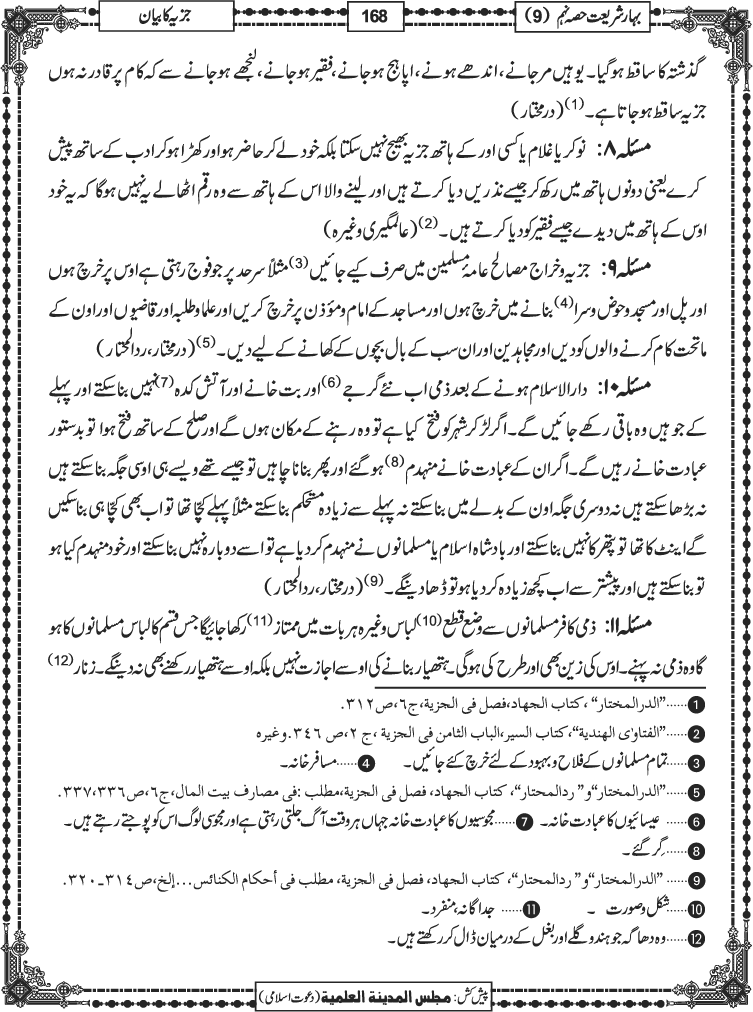 بہارِ شریعت حصہ نہم (9)
168
جزیہ کا بیان
گذشتہ کا ساقط ہو گیا۔ یوہیں مرجانے، اندھے ہونے، اپاہج ہو جانے، فقیر ہو جانے، لنجھے ہو جانے سے کہ کام پر قادر نہ ہوں
جزیہ ساقط ہو جاتا ہے۔ (1) (درمختار)
مسئلہ ۸: نوکر یا غلام یا کسی اور کے ہاتھ جزیہ بھیج نہیں سکتا بلکہ خود لے کر حاضر ہو اور کھڑا ہو کر ادب کے ساتھ پیش
کرے یعنی دونوں ہاتھ میں رکھ کر جیسے نذریں دیا کرتے ہیں اور لینے والا اس کے ہاتھ سے وہ رقم اٹھالے یہ نہیں ہوگا کہ یہ خود
اوس کے ہاتھ میں دیدے جیسے فقیر کو دیا کرتے ہیں۔ (2) (عالمگیری وغیرہ)
مسئلہ ۹: جزیہ و خراج مصالح عامۂ مسلمین میں صرف کیے جائیں (3) مثلاً سرحد پر جو فوج رہتی ہے اوس پر خرچ ہوں
اور پل اور مسجد و حوض و سرا (4) بنانے میں خرچ ہوں اور مساجد کے امام و مؤذن پر خرچ کریں اور علما و طلبہ اور قاضیوں اور اون کے
ماتحت کام کرنے والوں کو دیں اور مجاہدین اور ان سب کے بال بچوں کے کھانے کے لیے دیں۔ (5) (درمختار، ردالمحتار)
مسئلہ ۱۰: دارالاسلام ہونے کے بعد ذمی اب نئے گرجے (6) اور بت خانے اور آتش کدہ (7) نہیں بنا سکتے اور پہلے
کے جو ہیں وہ باقی رکھے جائیں گے۔ اگر لڑ کر شہر کو فتح کیا ہے تو وہ رہنے کے مکان ہوں گے اور صلح کے ساتھ فتح ہوا تو بدستور
عبادت خانے رہیں گے۔ اگر ان کے عبادت خانے منہدم (8) ہو گئے اور پھر بنانا چاہیں تو جیسے تھے ویسے ہی اوسی جگہ بنا سکتے ہیں
نہ بڑھا سکتے ہیں نہ دوسری جگہ اون کے بدلے میں بنا سکتے نہ پہلے سے زیادہ مستحکم بنا سکتے مثلاً پہلے کچا تھا تو اب بھی کچا ہی بنا سکیں
گے اینٹ کا تھا تو پتھر کا نہیں بنا سکتے اور بادشاہ اسلام یا مسلمانوں نے منہدم کر دیا ہے تو اسے دوبارہ نہیں بنا سکتے اور خود منہدم کیا ہو
تو بنا سکتے ہیں اور پیشتر سے اب کچھ زیادہ کر دیا ہو تو ڈھا دینگے۔ (9) (درمختار، ردالمحتار)
مسئلہ ۱۱: ذمی کافر مسلمانوں سے وضع قطع (10) لباس وغیرہ ہر بات میں ممتاز (11) رکھا جائیگا جس قسم کا لباس مسلمانوں کا ہو
گا وہ ذمی نہ پہنے۔ اوس کی زین بھی اور طرح کی ہوگی۔ ہتھیار بنانے کی اوسے اجازت نہیں بلکہ اوسے ہتھیار رکھنے بھی نہ دینگے۔ زنار (12)
1 ......"الدرالمختار"، كتاب الجهاد، فصل فی الجزية، ج٦، ص٣١٢.
2 ......"الفتاوی الهندية"، كتاب السير، الباب الثامن فی الجزية، ج ٢، ص ٣٤٦. وغيره
3 ......تمام مسلمانوں کے فلاح و بہبود کے لئے خرچ کئے جائیں۔ 4 ......مسافر خانہ۔
5 ......"الدرالمختار" و "ردالمحتار"، كتاب الجهاد، فصل فی الجزية، مطلب: فی مصارف بيت المال، ج٦، ص٣٣٦،٣٣٧.
6 ......عیسائیوں کا عبادت خانہ۔ 7 ......مجوسیوں کا عبادت خانہ جہاں ہر وقت آگ جلتی رہتی ہے اور مجوسی لوگ اس کو پوجتے رہتے ہیں۔
8 ......گر گئے۔
9 ......"الدرالمختار" و "ردالمحتار"، كتاب الجهاد، فصل فی الجزية، مطلب فی أحكام الكنائس...إلخ، ص٣١٤-٣٢٠.
10 ......شکل و صورت ۔ 11 ......جداگانہ، منفرد۔
12 ......وہ دھاگہ جو ہندو گلے اور بغل کے درمیان ڈال کر رکھتے ہیں۔
پیش کش: مجلس المدينة العلمية (دعوت اسلامی)